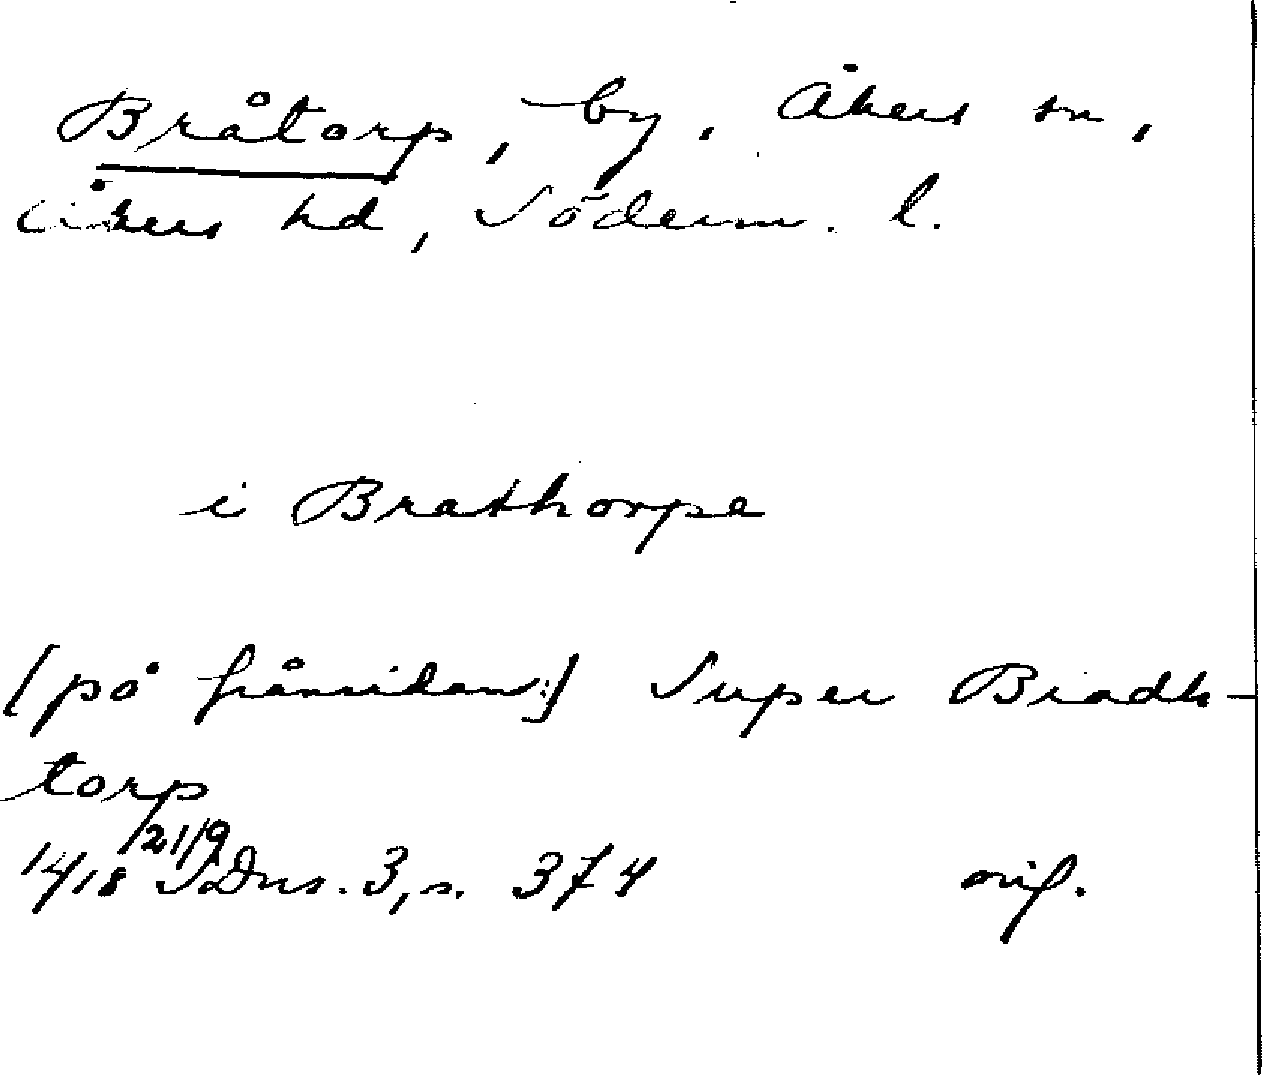 Bråtorp, by, Åkers sn,
Åkers hd, Söderm. l.
i Brathorpe
[på frånsidan:] Super Bradh-
torp
21/9
1418 SDns. 3, s. 374 orig.